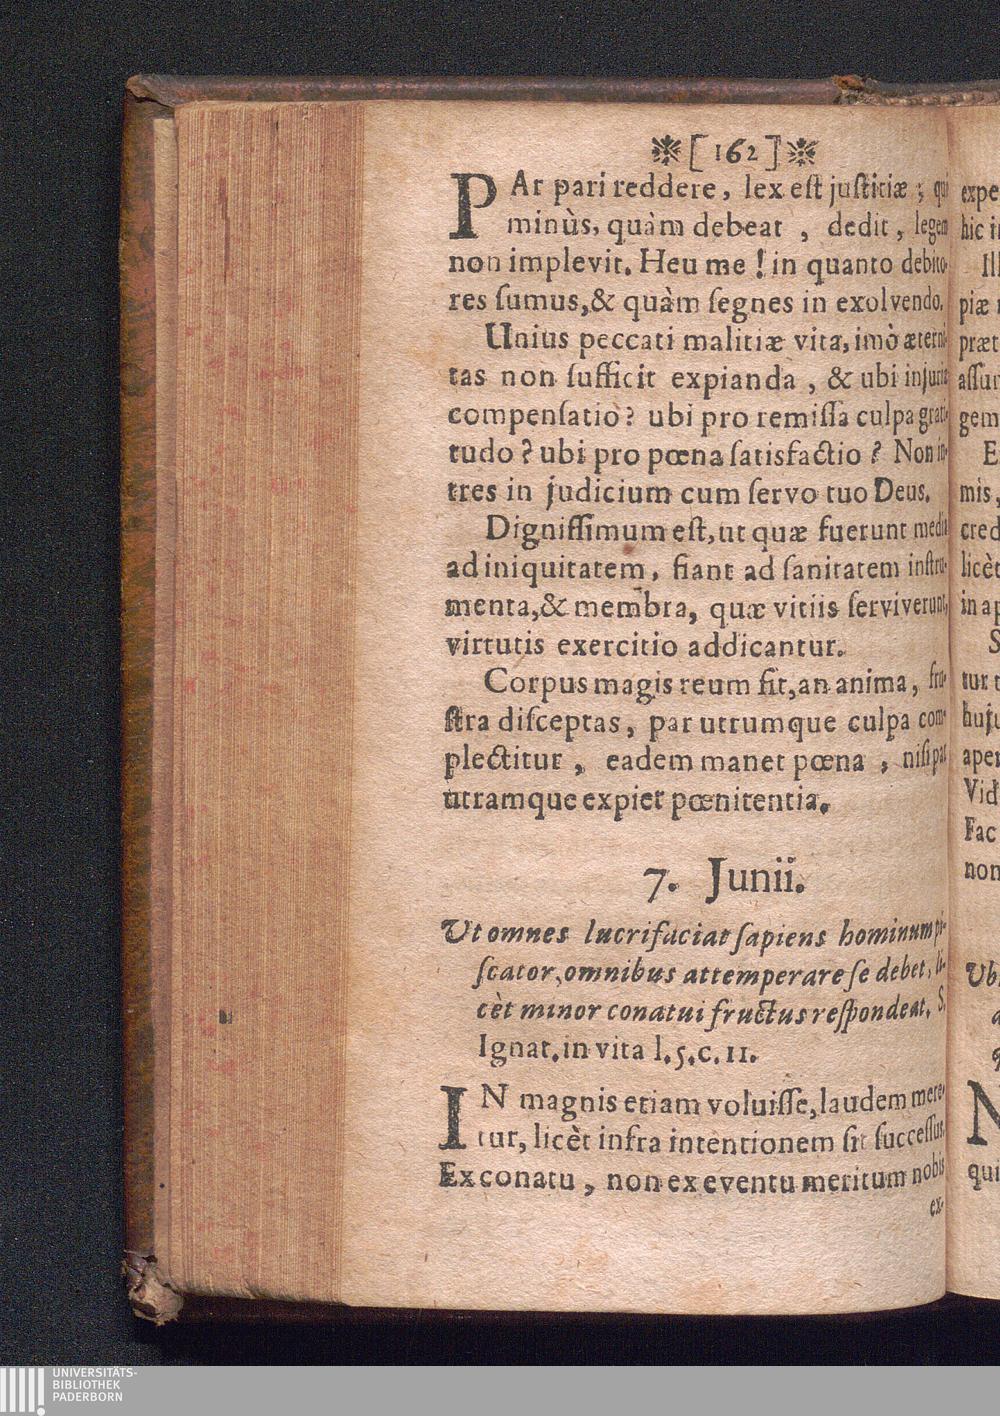 ❋[ 162 ]❋
PAr pari reddere, lex est justitiæ ; qui
minùs, quàm debeat , dedit, legem
non implevit. Heu me ! in quanto debito-
res sumus,& quàm segnes in exolvendo.
Unius peccati malitiæ vita, imò æterni-
tas non sufficit expianda , & ubi injuriæ
compensatio? ubi pro remissa culpa grati-
tudo ? ubi pro pœna satisfactio ? Non in-
tres in judicium cum servo tuo Deus.
Dignissimum est, ut quæ fuerunt media
ad iniquitatem, fiant ad sanitatem instru-
menta,& membra, quæ vitiis serviverunt,
virtutis exercitio addicantur.
Corpus magis reum sit, an anima, fru-
stra disceptas, par utrumque culpa com-
plectitur , eadem manet pœna , nisi par
utramque expiet pœnitentia.
7. Junii.
Ut omnes lucrifaciat sapiens hominum pi-
scator, omnibus attemperare se debet, li-
cèt minor conatui fructus respondeat. S.
Ignat. in vita l.5.c.11.
IN magnis etiam voluisse, laudem mere-
tur, licèt infra intentionem sit successus.
Ex conatu , non ex eventu meritum nobis
ex-
expe
hic i
Ill
piæ
præt
assu
gem
E
mis,
cred
licèt
in ap
S
tur t
huju
aper
Vid
Fac
non
Ub
a
N
qui
UNIVERSITÄTS-
BIBLIOTHEK
PADERBORN